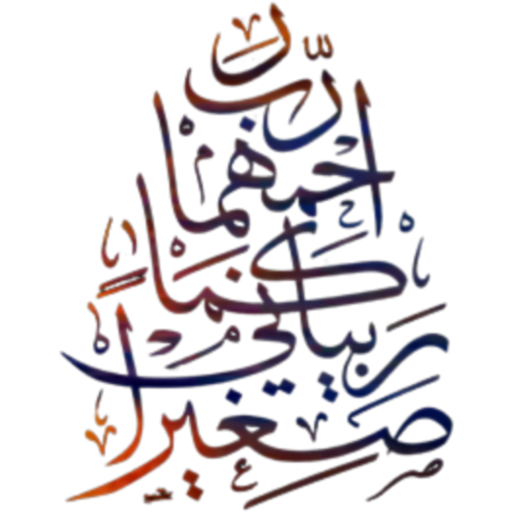 رب
ارحمهما
كما
ربياني
صغيرا